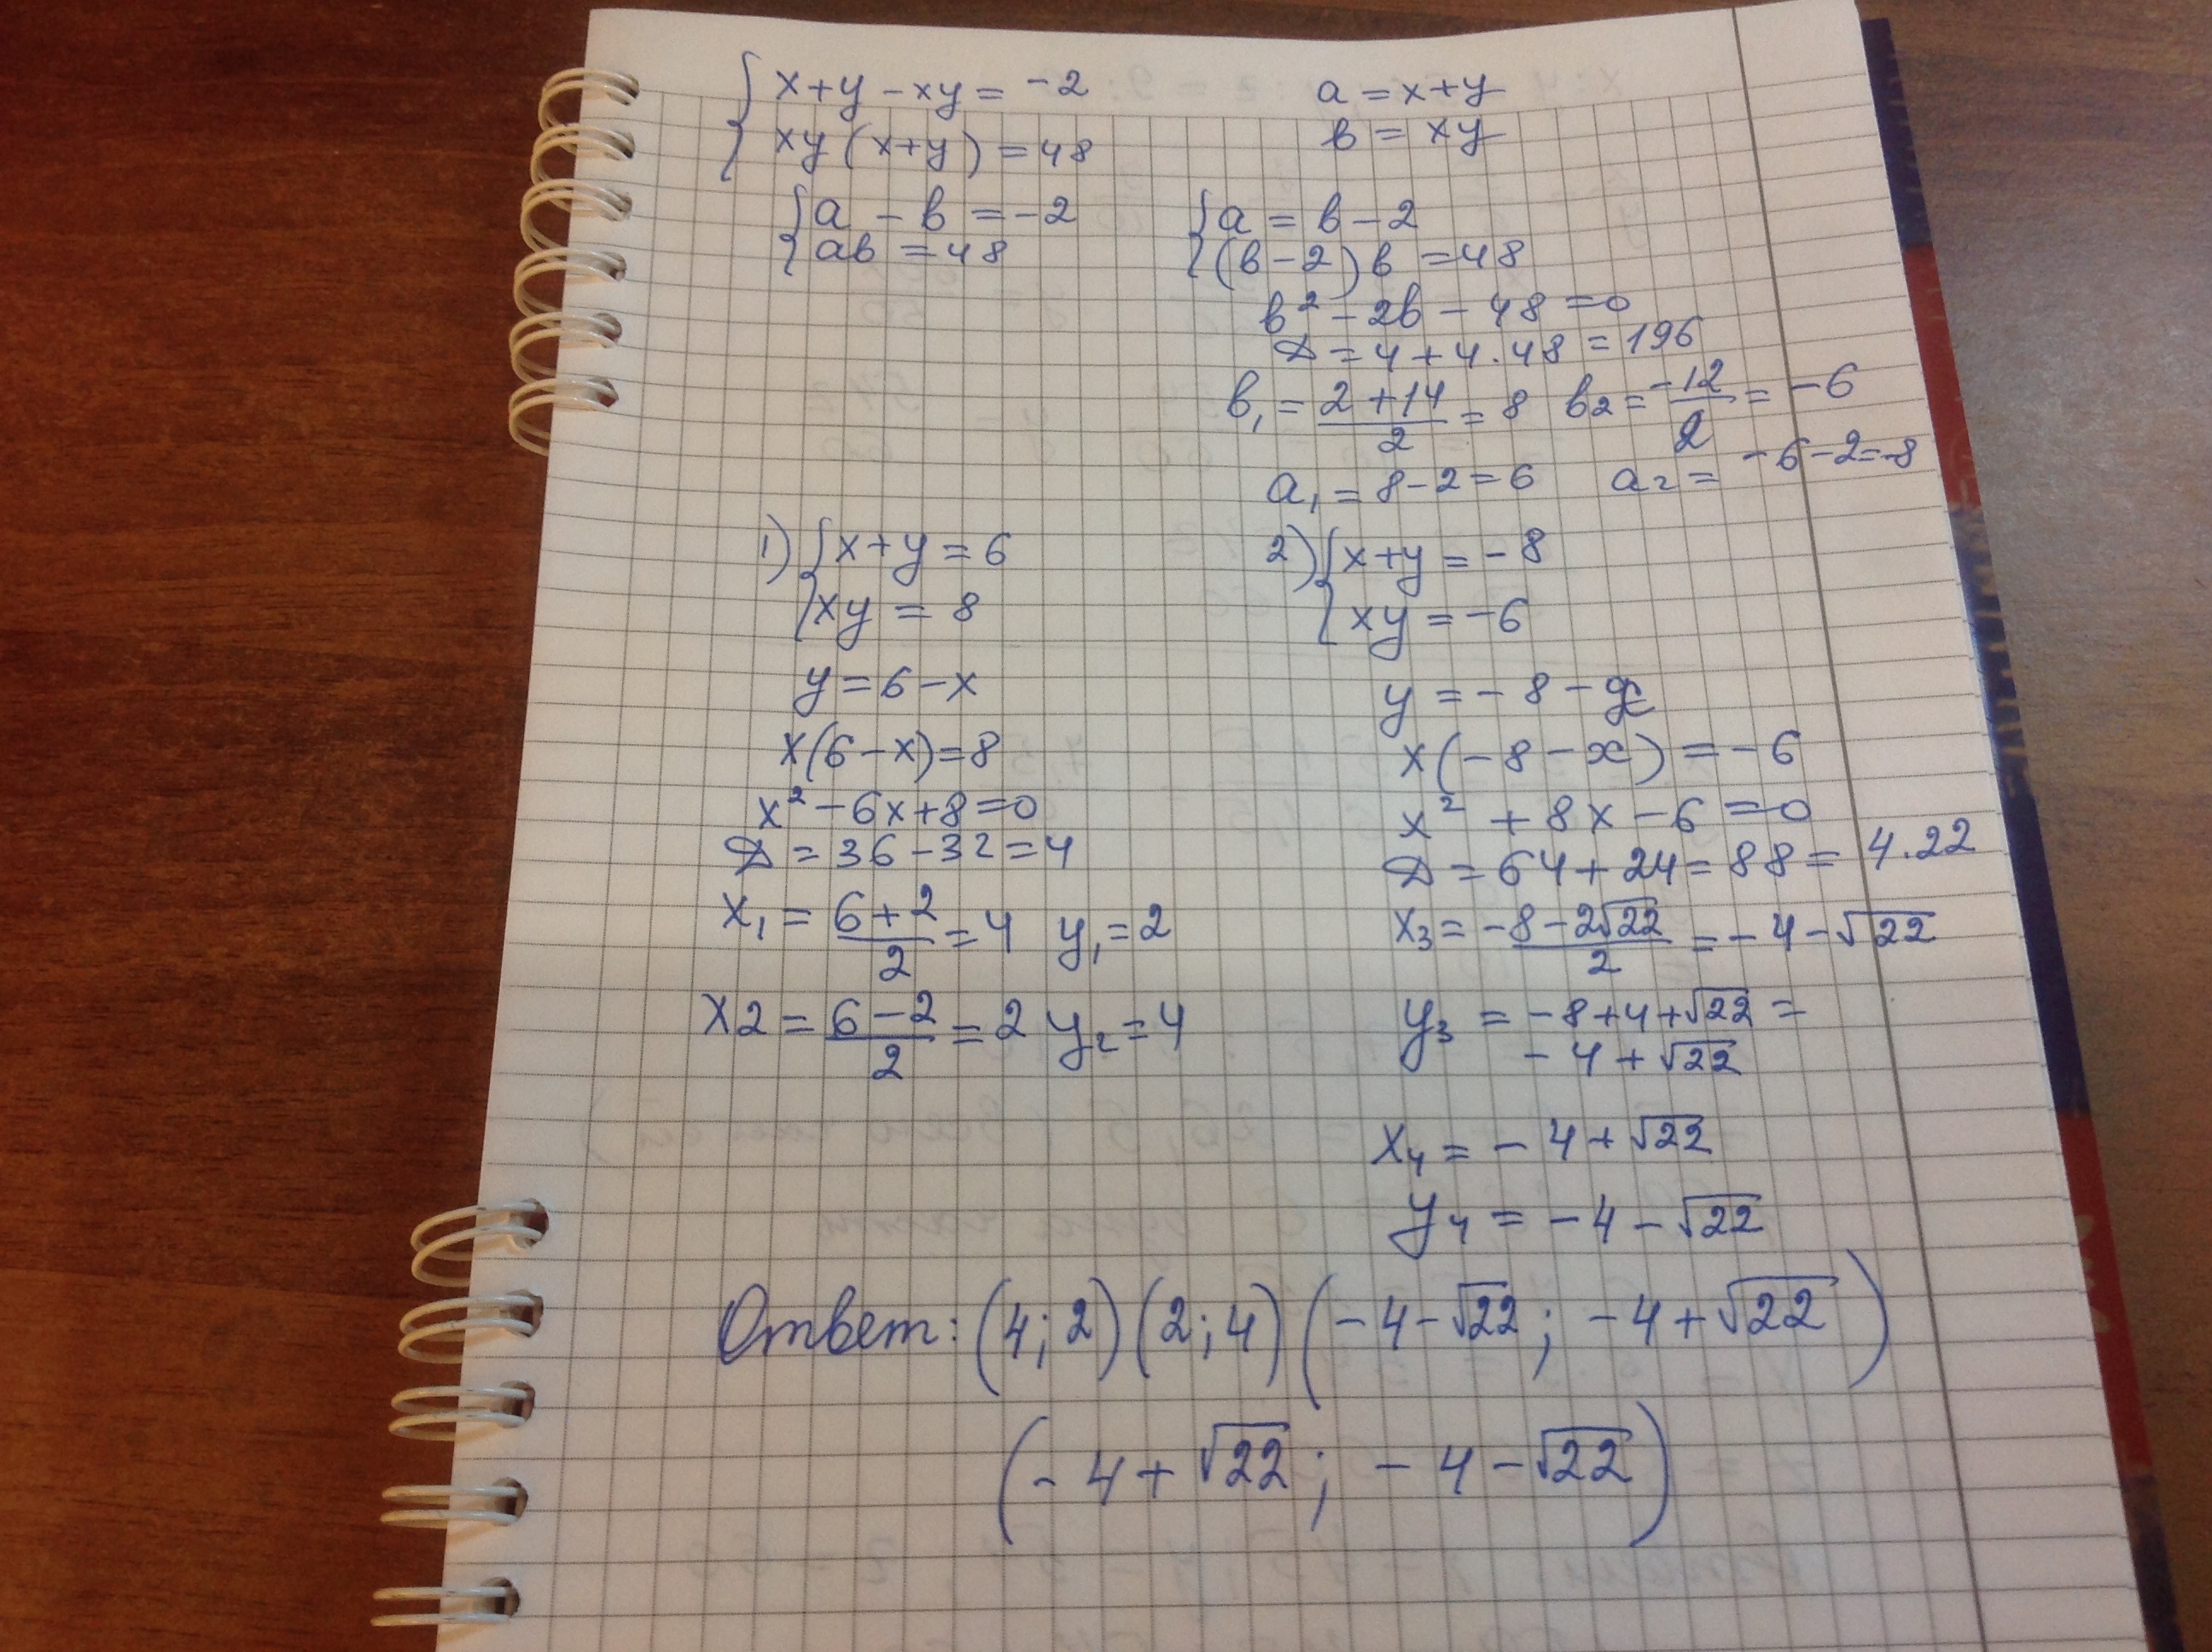 x+y-xy = -2 a = x+y
xy(x+y) = 48 в = xy
a - в = -2 a = в - 2
aв = 48 (в-2)в = 48
в² - 2в - 48 = 0
D = 4 + 4·48 = 196
в₁ = (2+14)/2 = 8 в₂ = -12/2 = -6
a₁ = 8-2 = 6 a₂ = -6-2=-8
1) { x+y = 6
xy = 8
y = 6 - x
x(6-x)=8
x² - 6x+8=0
D = 36-32=4
x₁ = (6+2)/2 = 4 y₁ = 2
x2 = (6-2)/2 = 2 y₂ = 4
2) { x+y = -8
xy = -6
y = -8 - x
x(-8-x) = -6
x² + 8x - 6 = 0
D = 64+24 = 88 = 4.22
x₃ = (-8-2√22)/2 = -4-√22
y₃ = -8+4+√22 =
-4+√22
x₄ = -4+√22
y₄ = -4-√22
Ответ: (4;2)(2;4)(-4-√22; -4+√22)
(-4+√22; -4-√22)